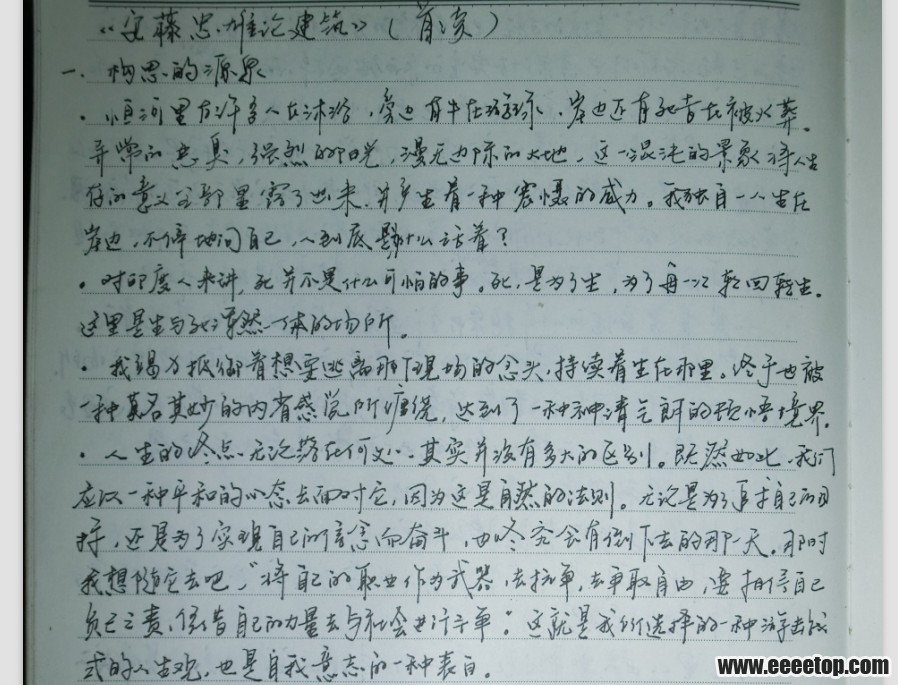 《安藤忠雄论建筑》（首读）
一. 构思的源泉
· 恒河里有许多人在沐浴，旁边有牛在游泳，岸边还有死者在被火葬。
异常的恶臭，强烈的阳光，漫无边际的大地，这一混沌的景象将人生
存的意义全部显露了出来，并产生着一种震慑的威力。我独自一人坐在
岸边，不停地问自己，人到底是为什么活着？
· 对印度人来讲，死并不是什么可怕的事。死，是为了生，为了再一次轮回转生。
这里是生与死浑然一体的场所。
· 我竭力抵御着想要逃离那个现场的念头，持续着坐在那里。终于也被
一种莫名其妙的内省感觉所缠绕，达到了一种神清气朗的顿悟境界。
· 人生的终点无论落在何处，其实并没有多大的区别。既然如此，我们
应以一种平和的心态去面对它，因为这是自然的法则。无论是为了维持自己的
，还是为了实现自己的信念而奋斗，也终究会有倒下去的那一天。那时
我想随它去吧，"将自己的职业作为武器，去抗争，去争取自由，要相信自己
负己之责，凭借自己的力量去与社会进行斗争"。这就是我所选择的一种游击战
式的人生观，也是自我意志的一种表白。
www.eeeetop.com